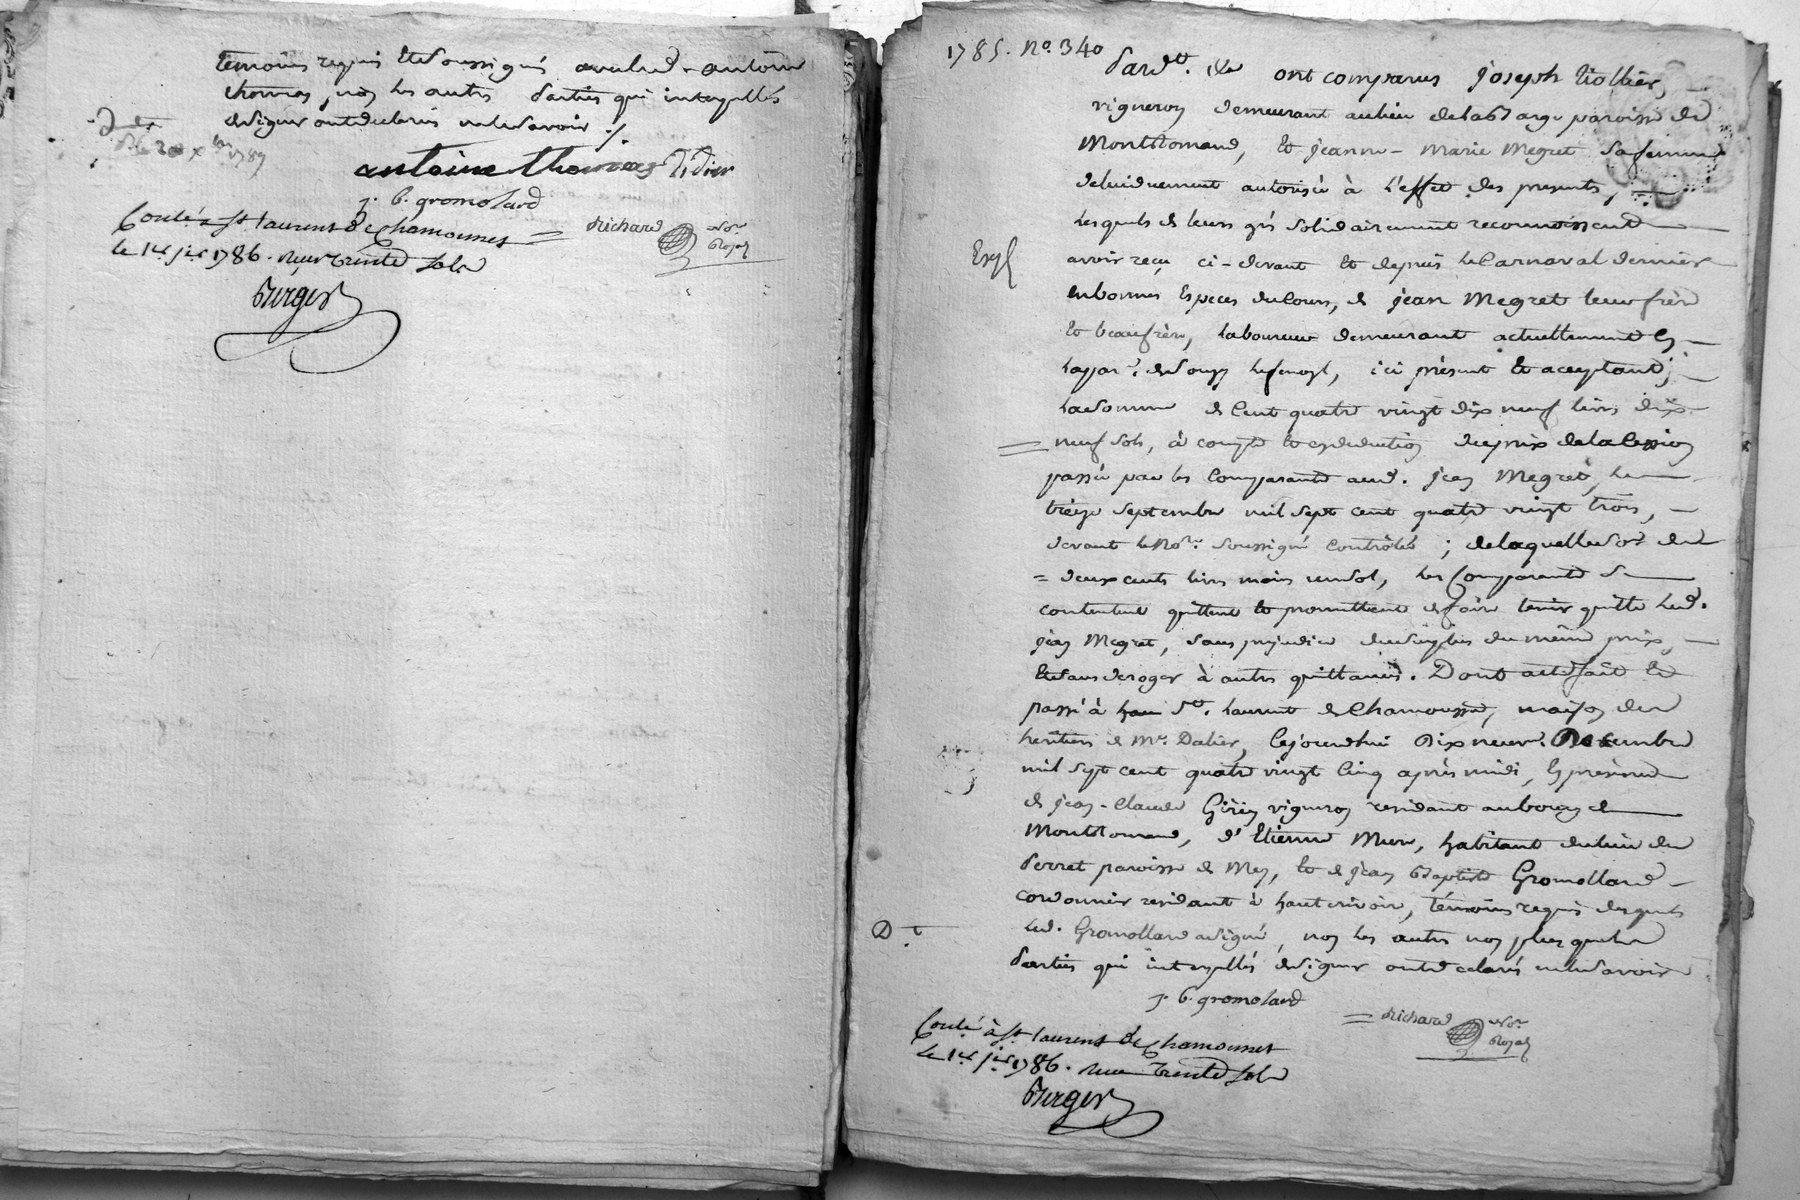 temoins requis et soussignés avec led. antoine
thomas, non les autres parties qui interpellés
de signer ont declaré ne le savoir ./.
antoine thomas Didier
j. b. gromolard
Richard No.re Royal
Conlé à St laurent de Chamousset
le 1er jer 1786. reçu trente sols
Berger
1785. No. 340
Pardt. &a ont comparus joseph Viollier,
vigneron demeurant au lieu de la paroisse de
Montromand, et jeanne-Marie Megret sa femme
de lui duement autorisée à l'effet des presentes,
lesquels de leurs grés solidairement reconnoissent
Expé
avoir reçu ci-devant et depuis le Carnaval dernier
en bonnes Especes du Cours, de jean Megret leur frère
et beaufrère, laboureur demeurant actuellement en
la par.e de Souzy , ici présent et acceptant;
la somme de Cent quatre vingt dix neuf livres dix
neuf sols, à compte et en deduction du prix de la Cession
passée par les Comparants aud. jean Megret, le
treize Septembre mil sept cent quatre vingt trois,
devant le No.re soussigné Contrôlée ; de laquelle so.e de
= deux cents livres moins un sol, les Comparants se
contentent quittent et promettent de faire tenir quitte led.
jean Megret, sans prejudice du surplus du même prix,
et sans deroger à autres quittances. Dont acte fait et
passé à St. Laurent de Chamousset, maison des
heritiers de Mr. Dalier, Cejourdhui Dix neuv. Decembre
mil sept cent quatre vingt Cinq après midi, En présence
de jean-Claude Girin vigneron residant au bourg de
Montromand, d'Etienne Mure, habitant du lieu du
Perret paroisse de Mey, et de jean Baptiste Gromollard
cordonnier residant à hauterivoire, témoins requis desquels
led. Gromollard a signé, non les autres non plus que les
Parties qui interpellés de signer ont declarés ne le savoir
j. b. gromolard
Richard No.re Royal
Conlé à St laurent de Chamousset
le 1er jer 1786. reçu trente sols
Berger